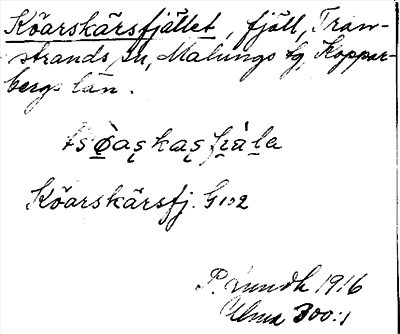 Köarskärsfjället, fjäll, Tran-
strands sn, Malungs tg, Koppar-
bergs län.
Köarskärsfj. G102
P. Lundh 1916
Ulma 300:1